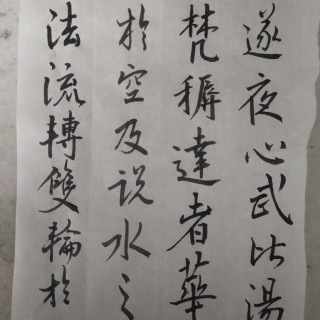 遂夜心武比湯
梵稱達者華
於空及說水之
法流轉雙輪於